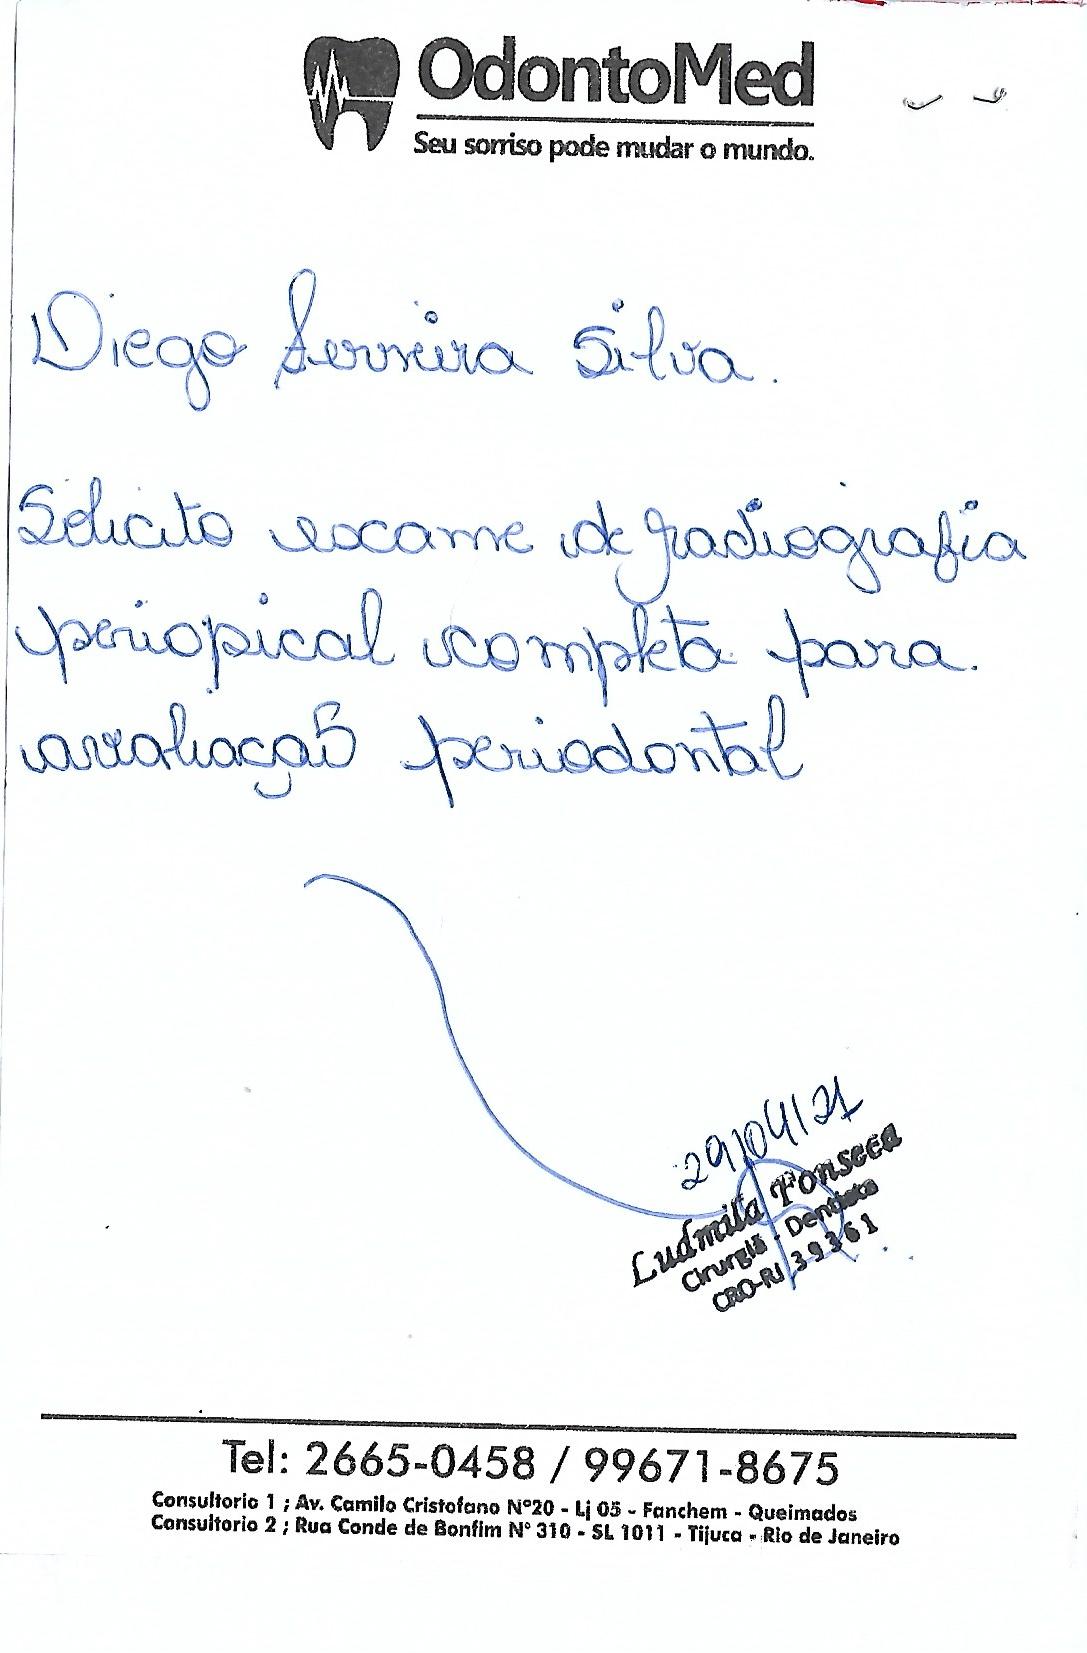 OdontoMed
Seu sorriso pode mudar o mundo.
Diego Ferreira Silva.
Solicito exame de radiografia
periapical completa para
avaliação periodontal
29/04/21
Ludmila Fonseca
Cirurgiã - Dentista
CRO-RJ 39361
Tel: 2665-0458 / 99671-8675
Consultorio 1 ; Av. Camilo Cristofano Nº20 - Lj 05 - Fanchem - Queimados
Consultorio 2 ; Rua Conde de Bonfim Nº 310 - SL 1011 - Tijuca - Rio de Janeiro